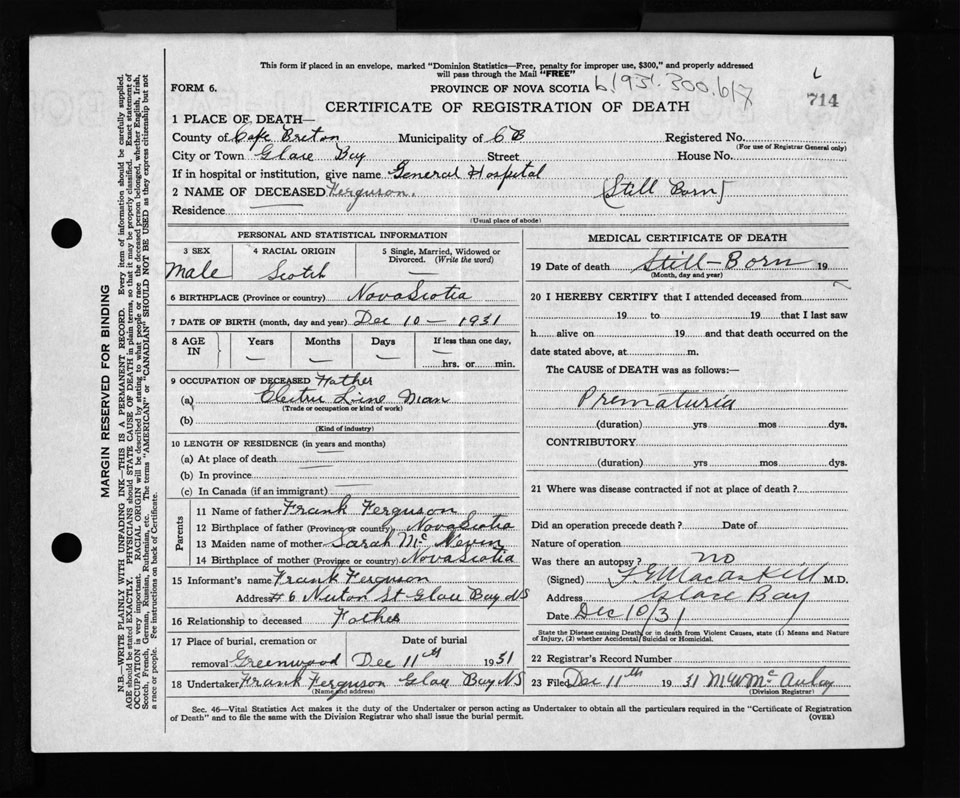 This form if placed in an envelope, marked "Dominion Statistics—Free, penalty for improper use, $300," and properly addressed
will pass through the Mail "FREE"
FORM 6. PROVINCE OF NOVA SCOTIA 6193. 300.617 714
CERTIFICATE OF REGISTRATION OF DEATH
1 PLACE OF DEATH—
County of Cape Breton Municipality of CB Registered No.
(For use of Registrar General only)
City or Town Glace Bay Street House No.
If in hospital or institution, give name General Hospital
2 NAME OF DECEASED Ferguson. (Still Born)
Residence —
(Usual place of abode)
PERSONAL AND STATISTICAL INFORMATION
3 SEX 4 RACIAL ORIGIN 5 Single, Married, Widowed or
Divorced. (Write the word)
Male Scotch —
6 BIRTHPLACE (Province or country) Nova Scotia
7 DATE OF BIRTH (month, day and year) Dec 10 – 1931
8 AGE IN Years Months Days If less than one day,
— — — — hrs. or min.
9 OCCUPATION OF DECEASED Father
(a) Electric Line Man
(Trade or occupation or kind of work)
(b)
(Kind of industry)
10 LENGTH OF RESIDENCE (in years and months)
(a) At place of death —
(b) In province —
(c) In Canada (if an immigrant) —
Parents
11 Name of father Frank Ferguson
12 Birthplace of father (Province or country) Nova Scotia
13 Maiden name of mother Sarah Mc Nevin
14 Birthplace of mother (Province or country) Nova Scotia
15 Informant's name Frank Ferguson
Address #6 St Glace Bay NS
16 Relationship to deceased Father
17 Place of burial, cremation or Date of burial
removal Greenwood Dec 11th 1931
18 Undertaker Frank Ferguson Glace Bay NS
(Name and address)
MEDICAL CERTIFICATE OF DEATH
19 Date of death Still-Born 19
(Month, day and year)
20 I HEREBY CERTIFY that I attended deceased from
19 to 19 that I last saw
h alive on 19 and that death occurred on the
date stated above, at m.
The CAUSE of DEATH was as follows:—
Prematuria
(duration) yrs mos dys.
CONTRIBUTORY
(duration) yrs mos dys.
21 Where was disease contracted if not at place of death?
Did an operation precede death? Date of
Nature of operation
Was there an autopsy? no
(Signed) MacAskill M.D.
Address Glace Bay
Date Dec 10/31
State the Disease causing Death, or in death from Violent Causes, state (1) Means and Nature
of Injury, (2) whether Accidental, Suicidal or Homicidal.
22 Registrar's Record Number
23 Filed Dec 11th 1931 McAulay
(Division Registrar)
Sec. 46—Vital Statistics Act makes it the duty of the Undertaker or person acting as Undertaker to obtain all the particulars required in the "Certificate of Registration
of Death" and to file the same with the Division Registrar who shall issue the burial permit. (OVER)
MARGIN RESERVED FOR BINDING
N.B.—WRITE PLAINLY WITH UNFADING INK—THIS IS A PERMANENT RECORD. Every item of information should be carefully supplied.
AGE should be stated EXACTLY. PHYSICIANS should STATE CAUSE OF DEATH in plain terms, so that it may be properly classified. Exact statement of
OCCUPATION is very important. RACIAL ORIGIN will be described by stating to what people or race the deceased person belonged, whether English, Irish,
Scotch, French, German, Russian, Ruthenian, etc. The terms "AMERICAN" or "CANADIAN" SHOULD NOT BE USED as they express citizenship but not
a race or people. See instructions on back of Certificate.